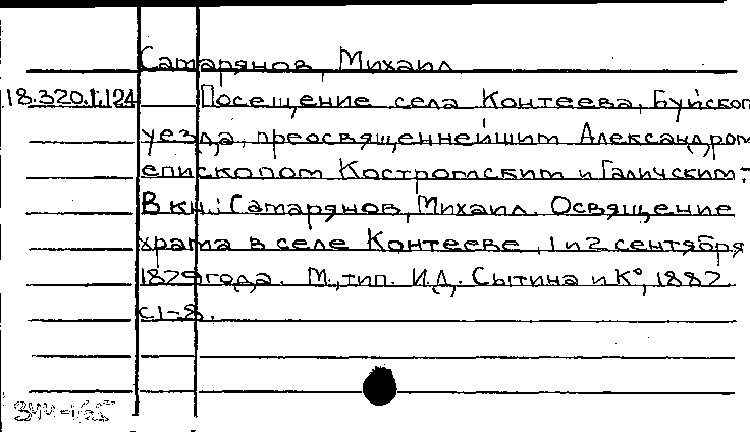 Сатарянов, Михаил
18.320.1.124 Посещение села Контеева, Буйског
уезда, преосвященнейшим Александром
епископом Костромским и Галичским.-
В кн.: Сатарянов, Михаил. Освящение
храма в селе Контееве, 1 и 2 сентября
1829 года. М., тип. И.Д. Сытина и К°, 1882
с1-8.